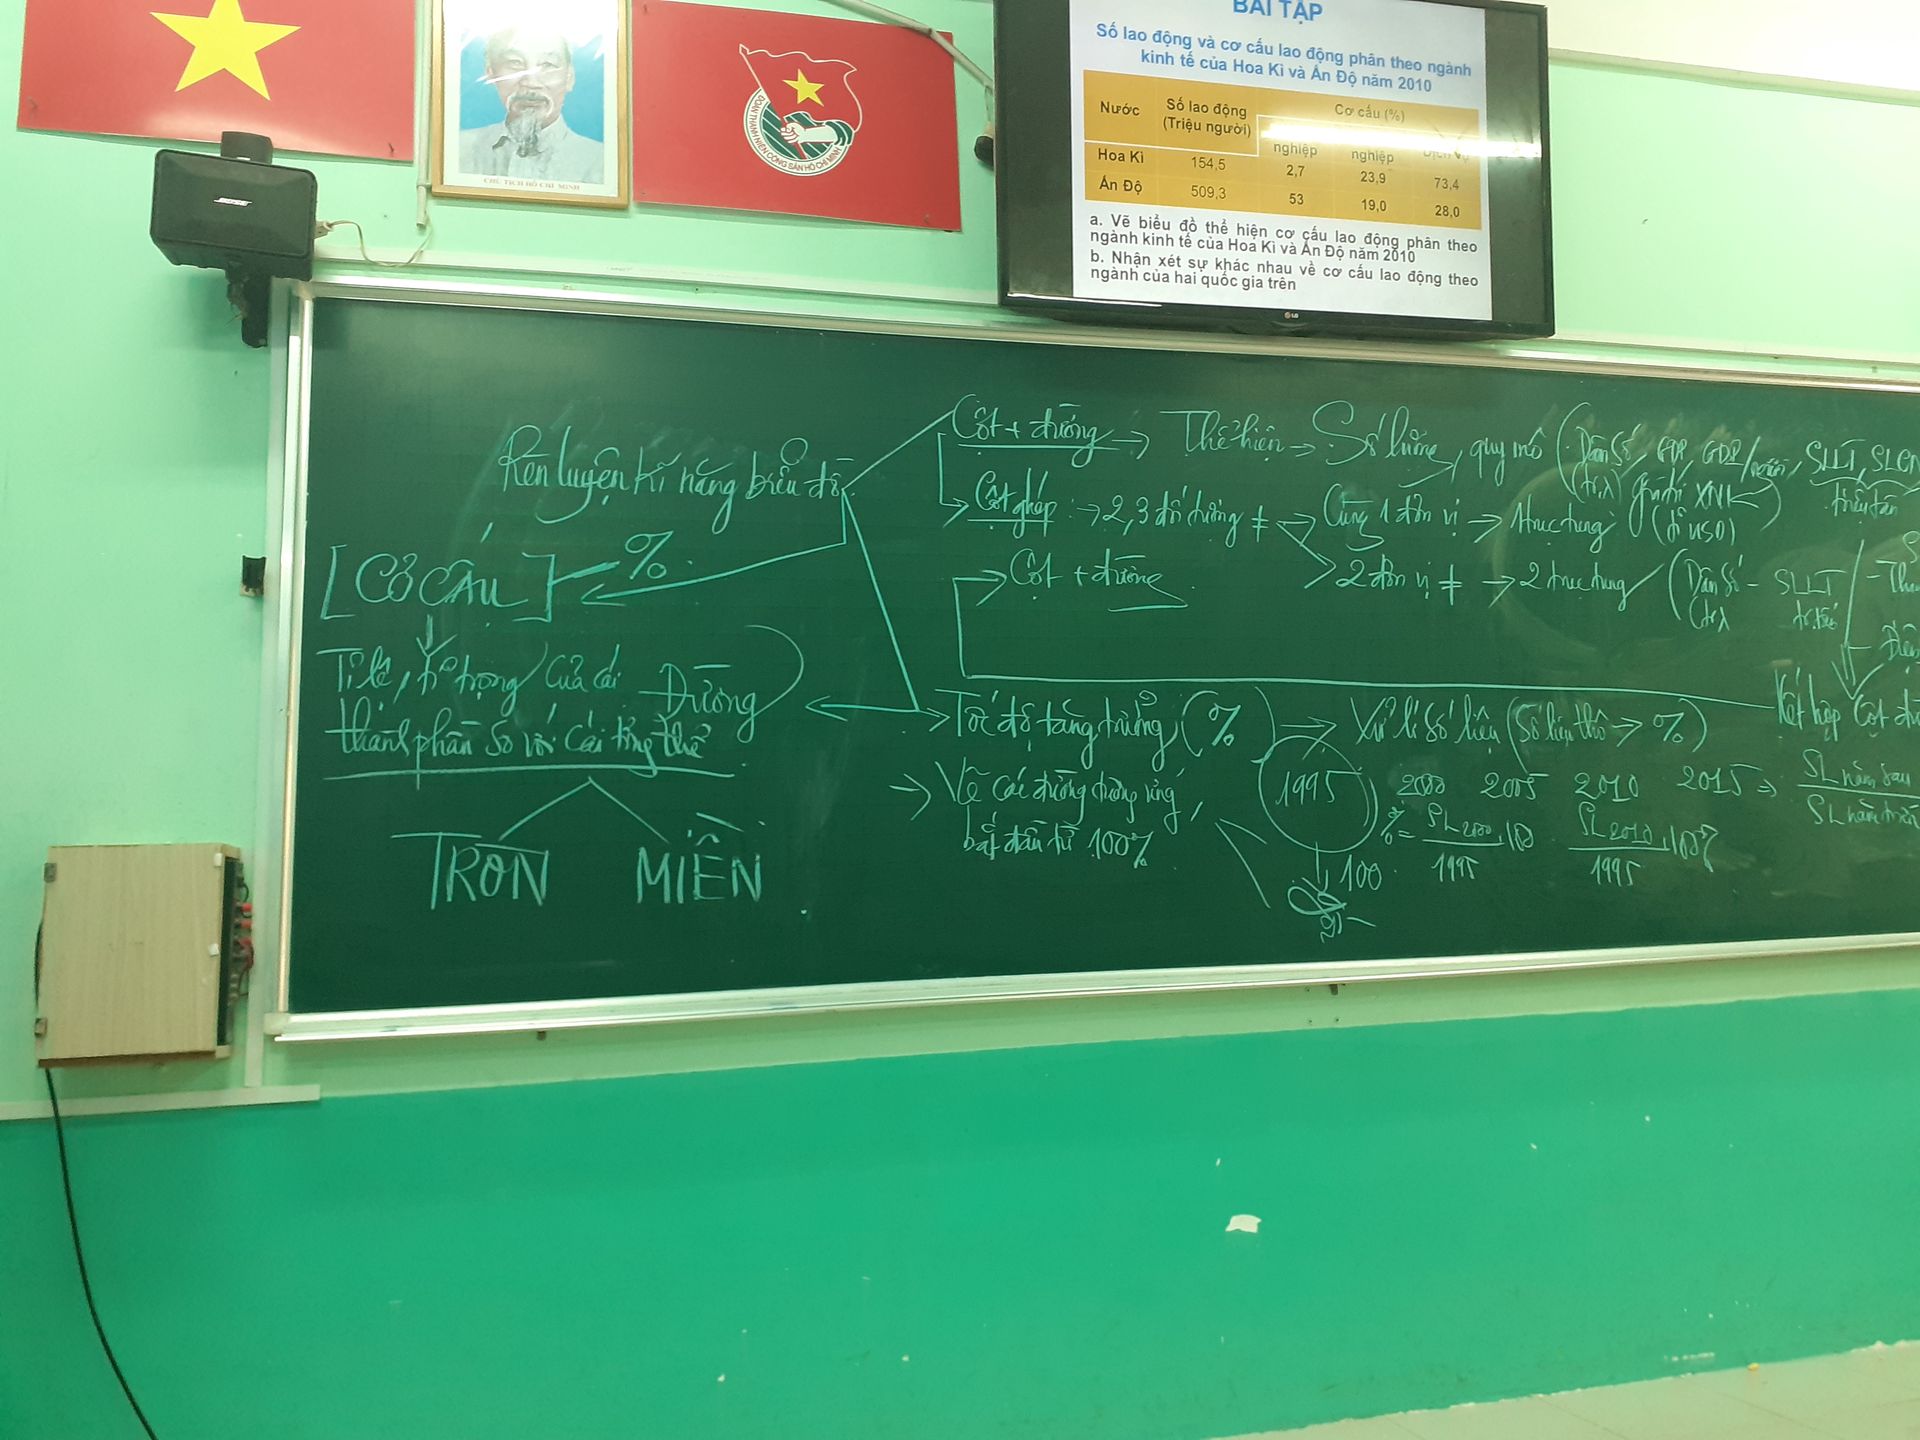 BÀI TẬP
Số lao động và cơ cấu lao động phân theo ngành
kinh tế của Hoa Kì và Ấn Độ năm 2010
Nước Số lao động Cơ cấu (%)
(Triệu người)
nghiệp nghiệp Dịch vụ
Hoa Kì 154,5 2,7 23,9 73,4
Ấn Độ 509,3 53 19,0 28,0
a. Vẽ biểu đồ thể hiện cơ cấu lao động phân theo
ngành kinh tế của Hoa Kì và Ấn Độ năm 2010
b. Nhận xét sự khác nhau về cơ cấu lao động theo
ngành của hai quốc gia trên
LG
CHỦ TỊCH HỒ CHÍ MINH
ĐOÀN THANH NIÊN CỘNG SẢN HỒ CHÍ MINH
BOSE
Rèn luyện kĩ năng biểu đồ
[CƠ CẤU] %
Tỉ lệ, tỉ trọng của cái
thành phần so với cái tổng thể
Đường
TRÒN MIỀN
Cột + đường → Thể hiện → Số lượng, quy mô (Dân số, GDP, GDP/người, SLLT, SLCN
(tr) giá trị XNK) triệu tấn
(tỉ USD)
Cột ghép : → 2,3 đối tượng ≠ → Cùng 1 đơn vị → 1 trục tung
Cột + đường 2 đơn vị ≠ → 2 trục tung (Dân số - SLLT
Tốc độ tăng trưởng (%) → Xử lí số liệu (Số liệu thô → %) Kết hợp Cột
→ Vẽ các đường tương ứng, 1995 2000 2005 2010 2015 ⇒ SL năm sau
bắt đầu từ 100% 100 % = SL2000 .100 SL2010 .100% SL năm trước
1995 1995